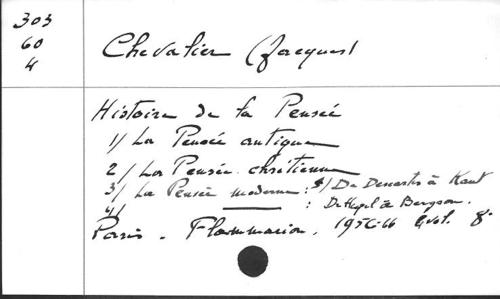 303
60
4
Chevalier (Jacques)
Histoire de la Pensée
1/ La Pensée antique
2/ La Pensée chrétienne
3/ La Pensée moderne : De Descartes à Kant
4/ ——— : De Hegel à Bergson.
Paris. Flammarion. 1956-66 4 vol. 8°